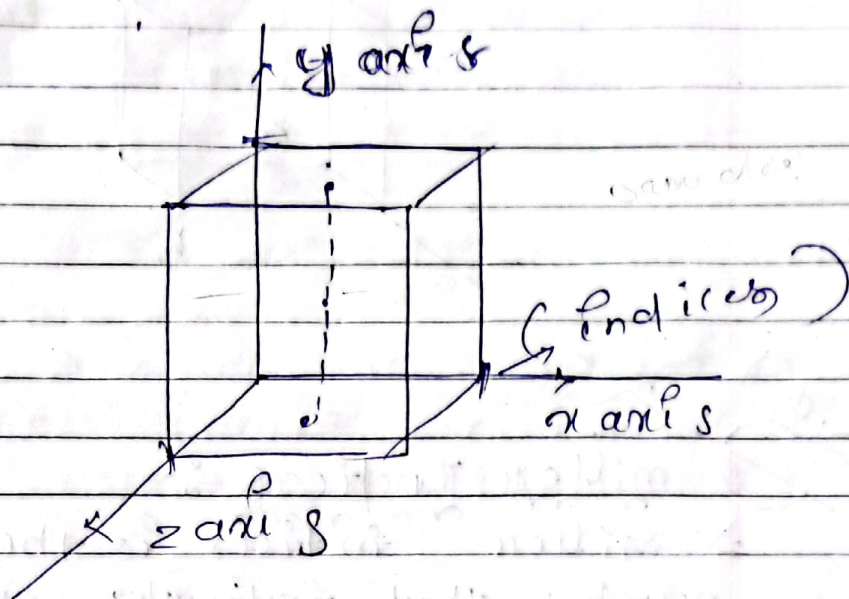 y axis
(indices)
x axis
z axis